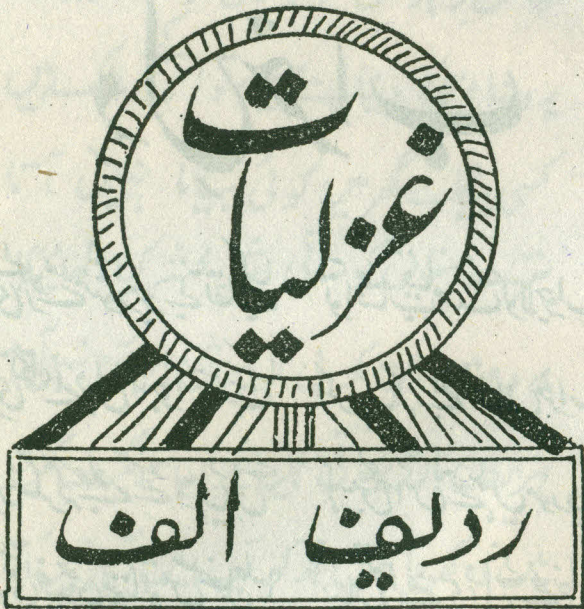 غزلیات
ردیف الف